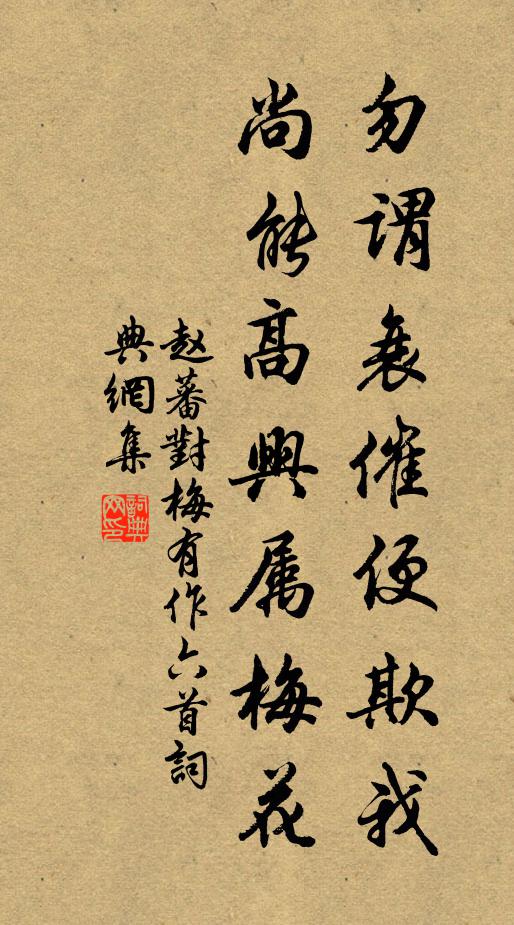 勿谓衰催便欺我
尚能高興属梅花
赵蕃對梅有作六首詞
典網集
詞典網印